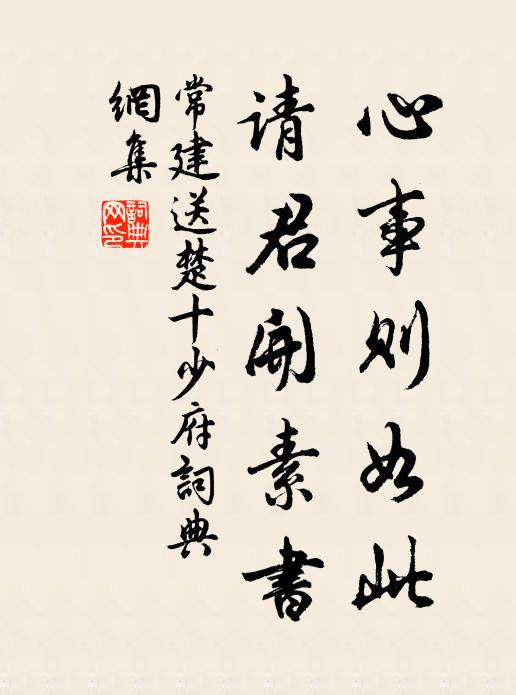 心事则如此
请君開素書
常建送楚十少府詞典
網集
詞典網印